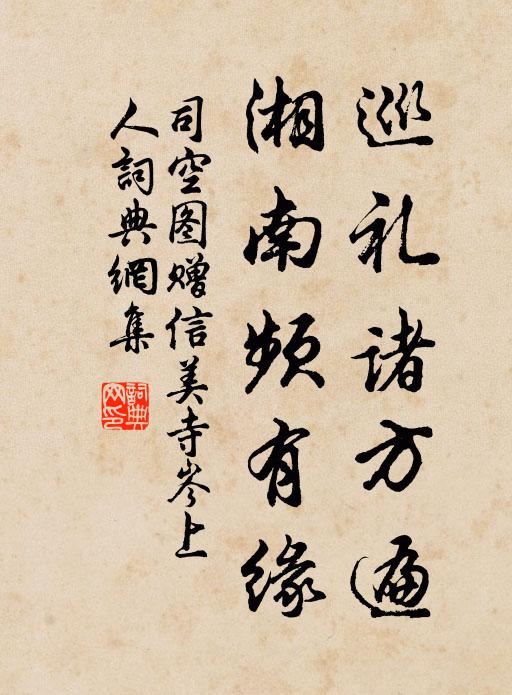 巡礼诸方遍
湘南频有缘
司空图赠信美寺岑上
人詞典網集
詞典網印